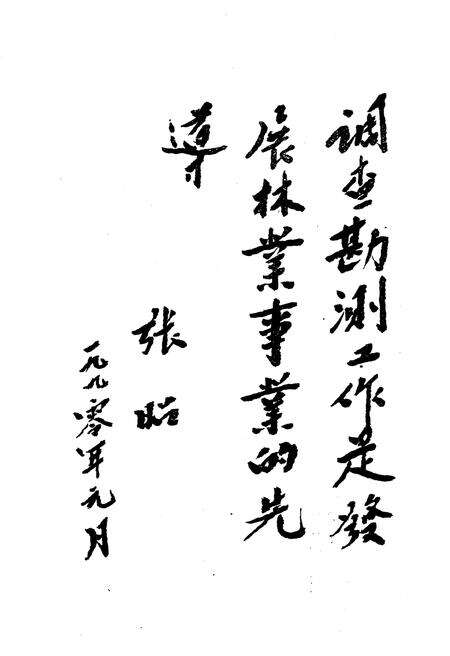 調查勘测工作是發
展林業事業的先
導
张昭
一九九零年元月